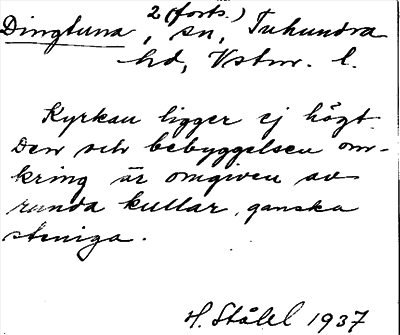 2 (forts.)
Dingtuna, sn, Tuhundra
hd, Vstm. l.
Kyrkan ligger ej högt.
Den och bebyggelsen om-
kring är omgiven av
runda kullar, ganska
steniga.
H. Ståhl 1937